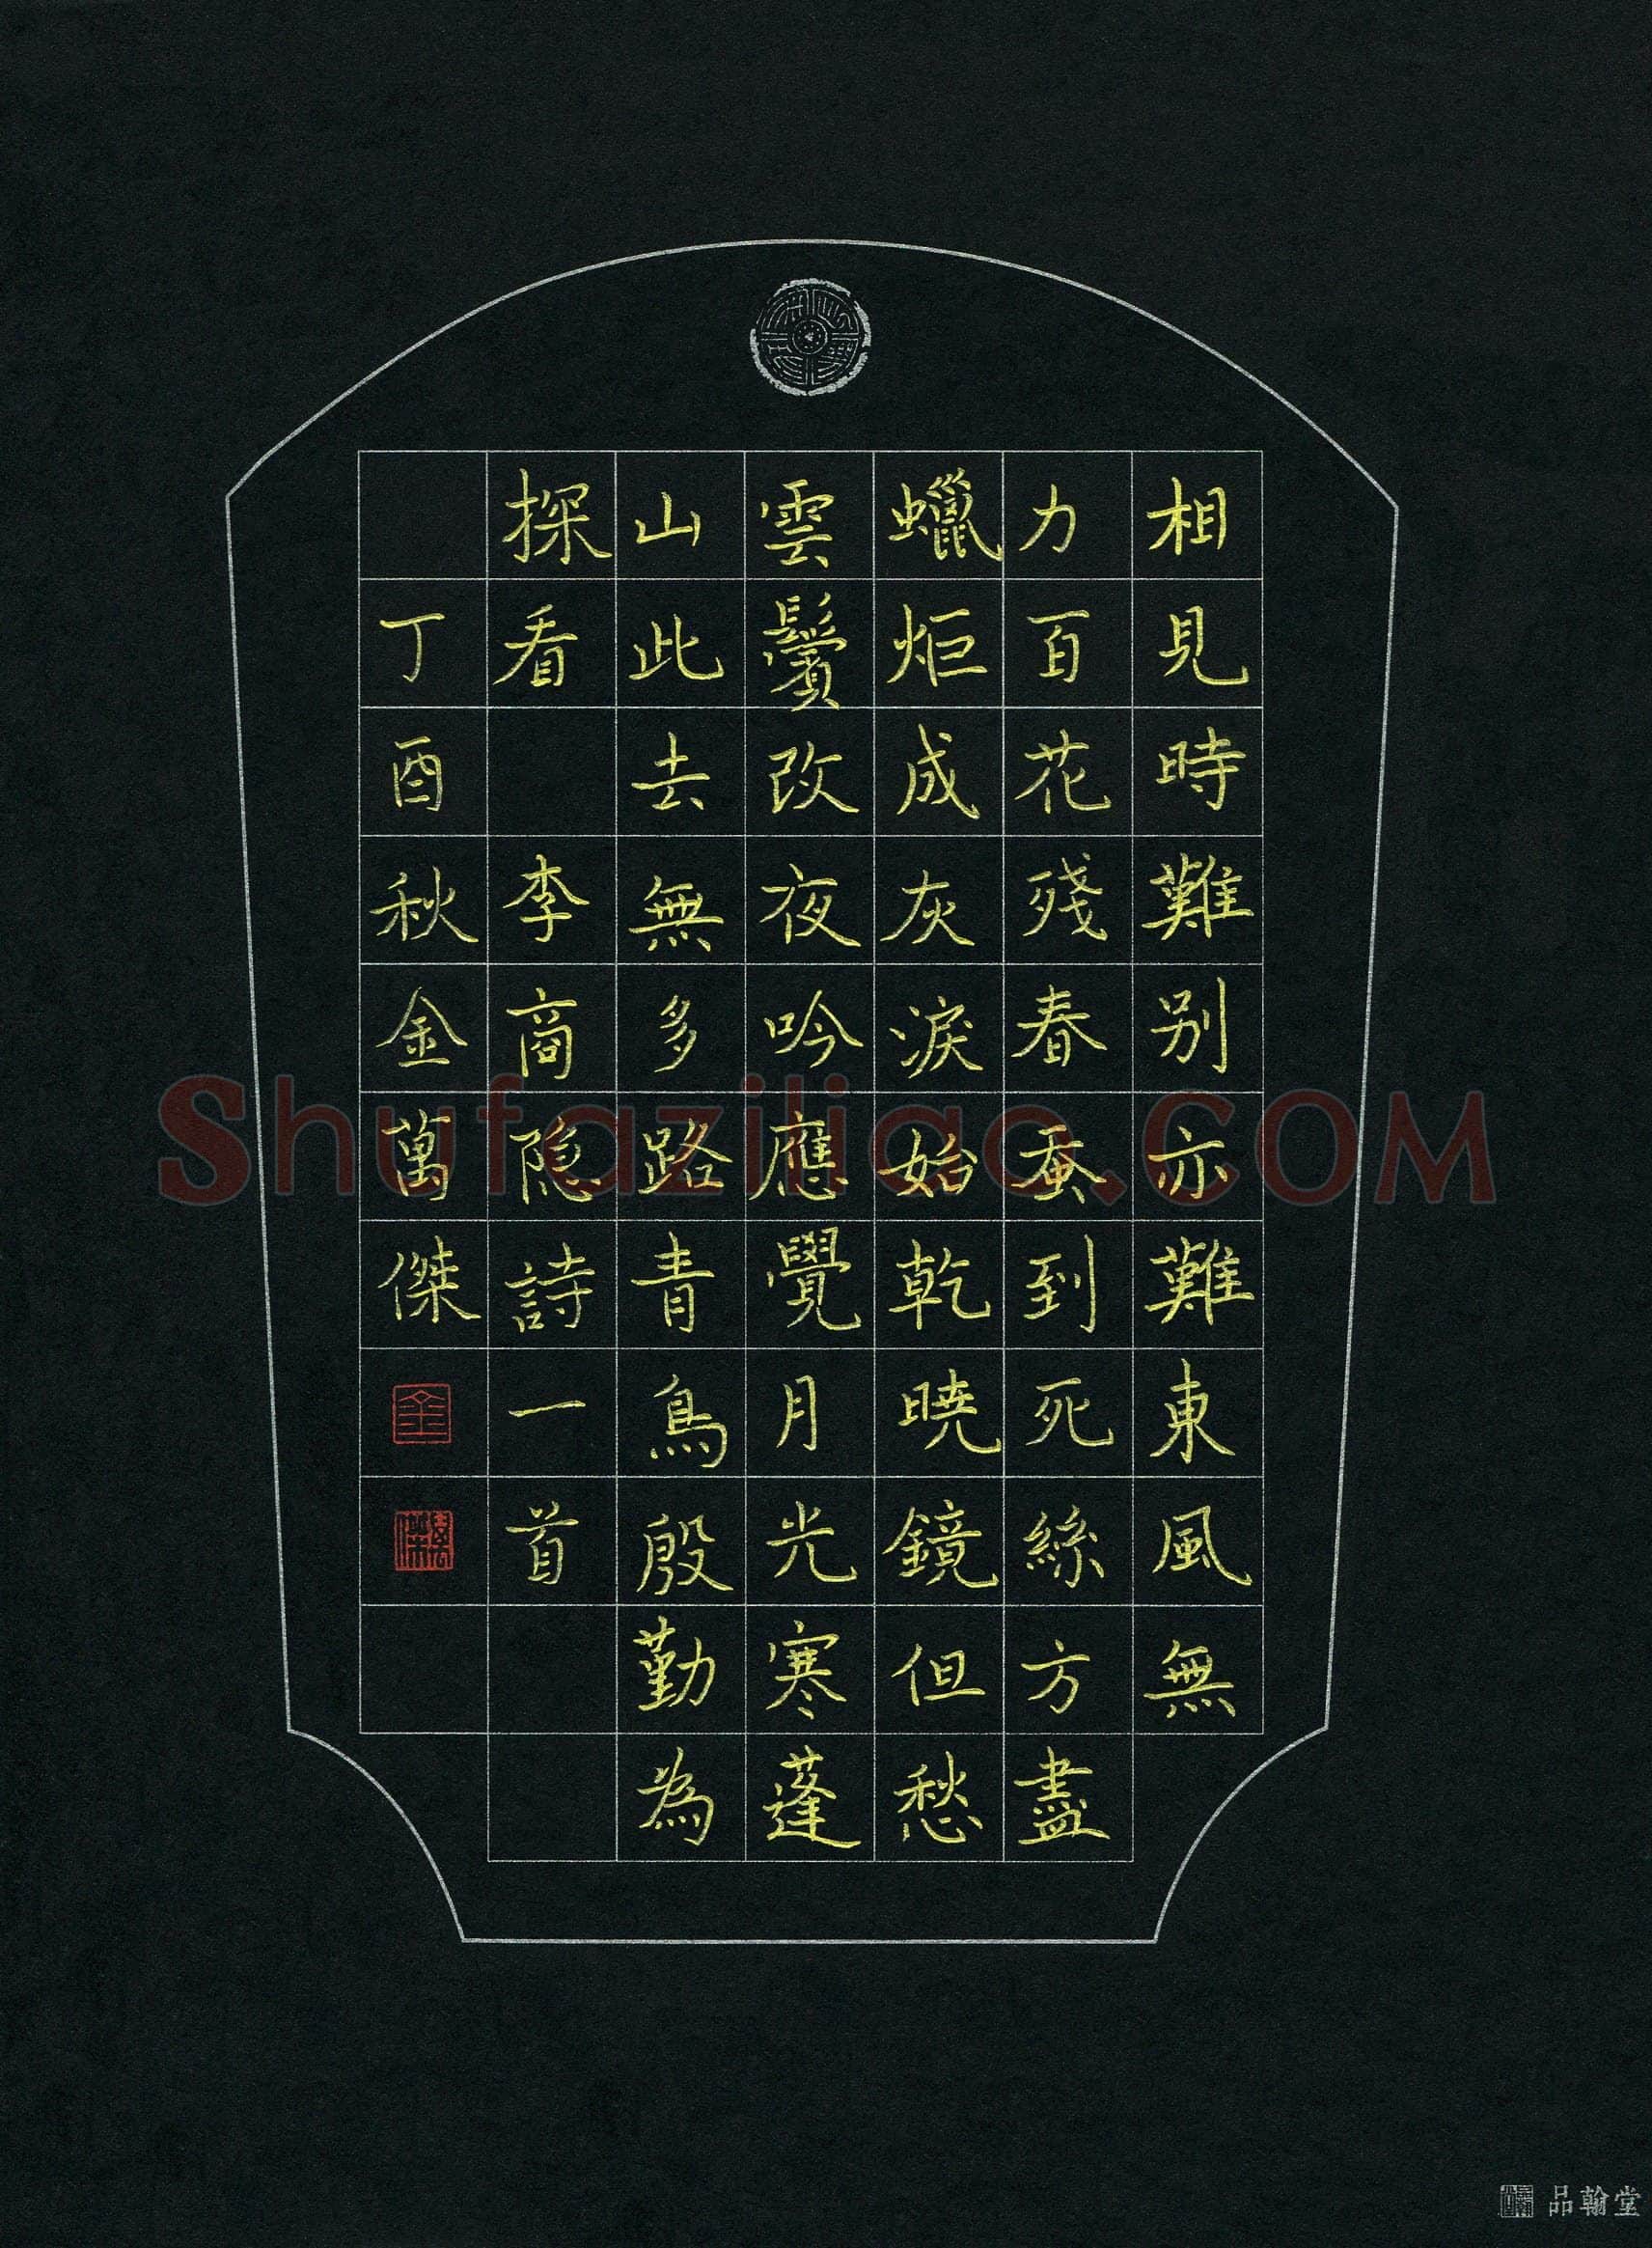 相見時難别亦難東風無
力百花殘春蚕到死絲方盡
蠟炬成灰淚始乾曉鏡但愁
雲鬢改夜吟應覺月光寒蓬
山此去無多路青鳥殷勤為
探看 李商隐詩一首
丁酉秋金萬傑
金
萬傑
Shufaziliao.COM
品翰堂